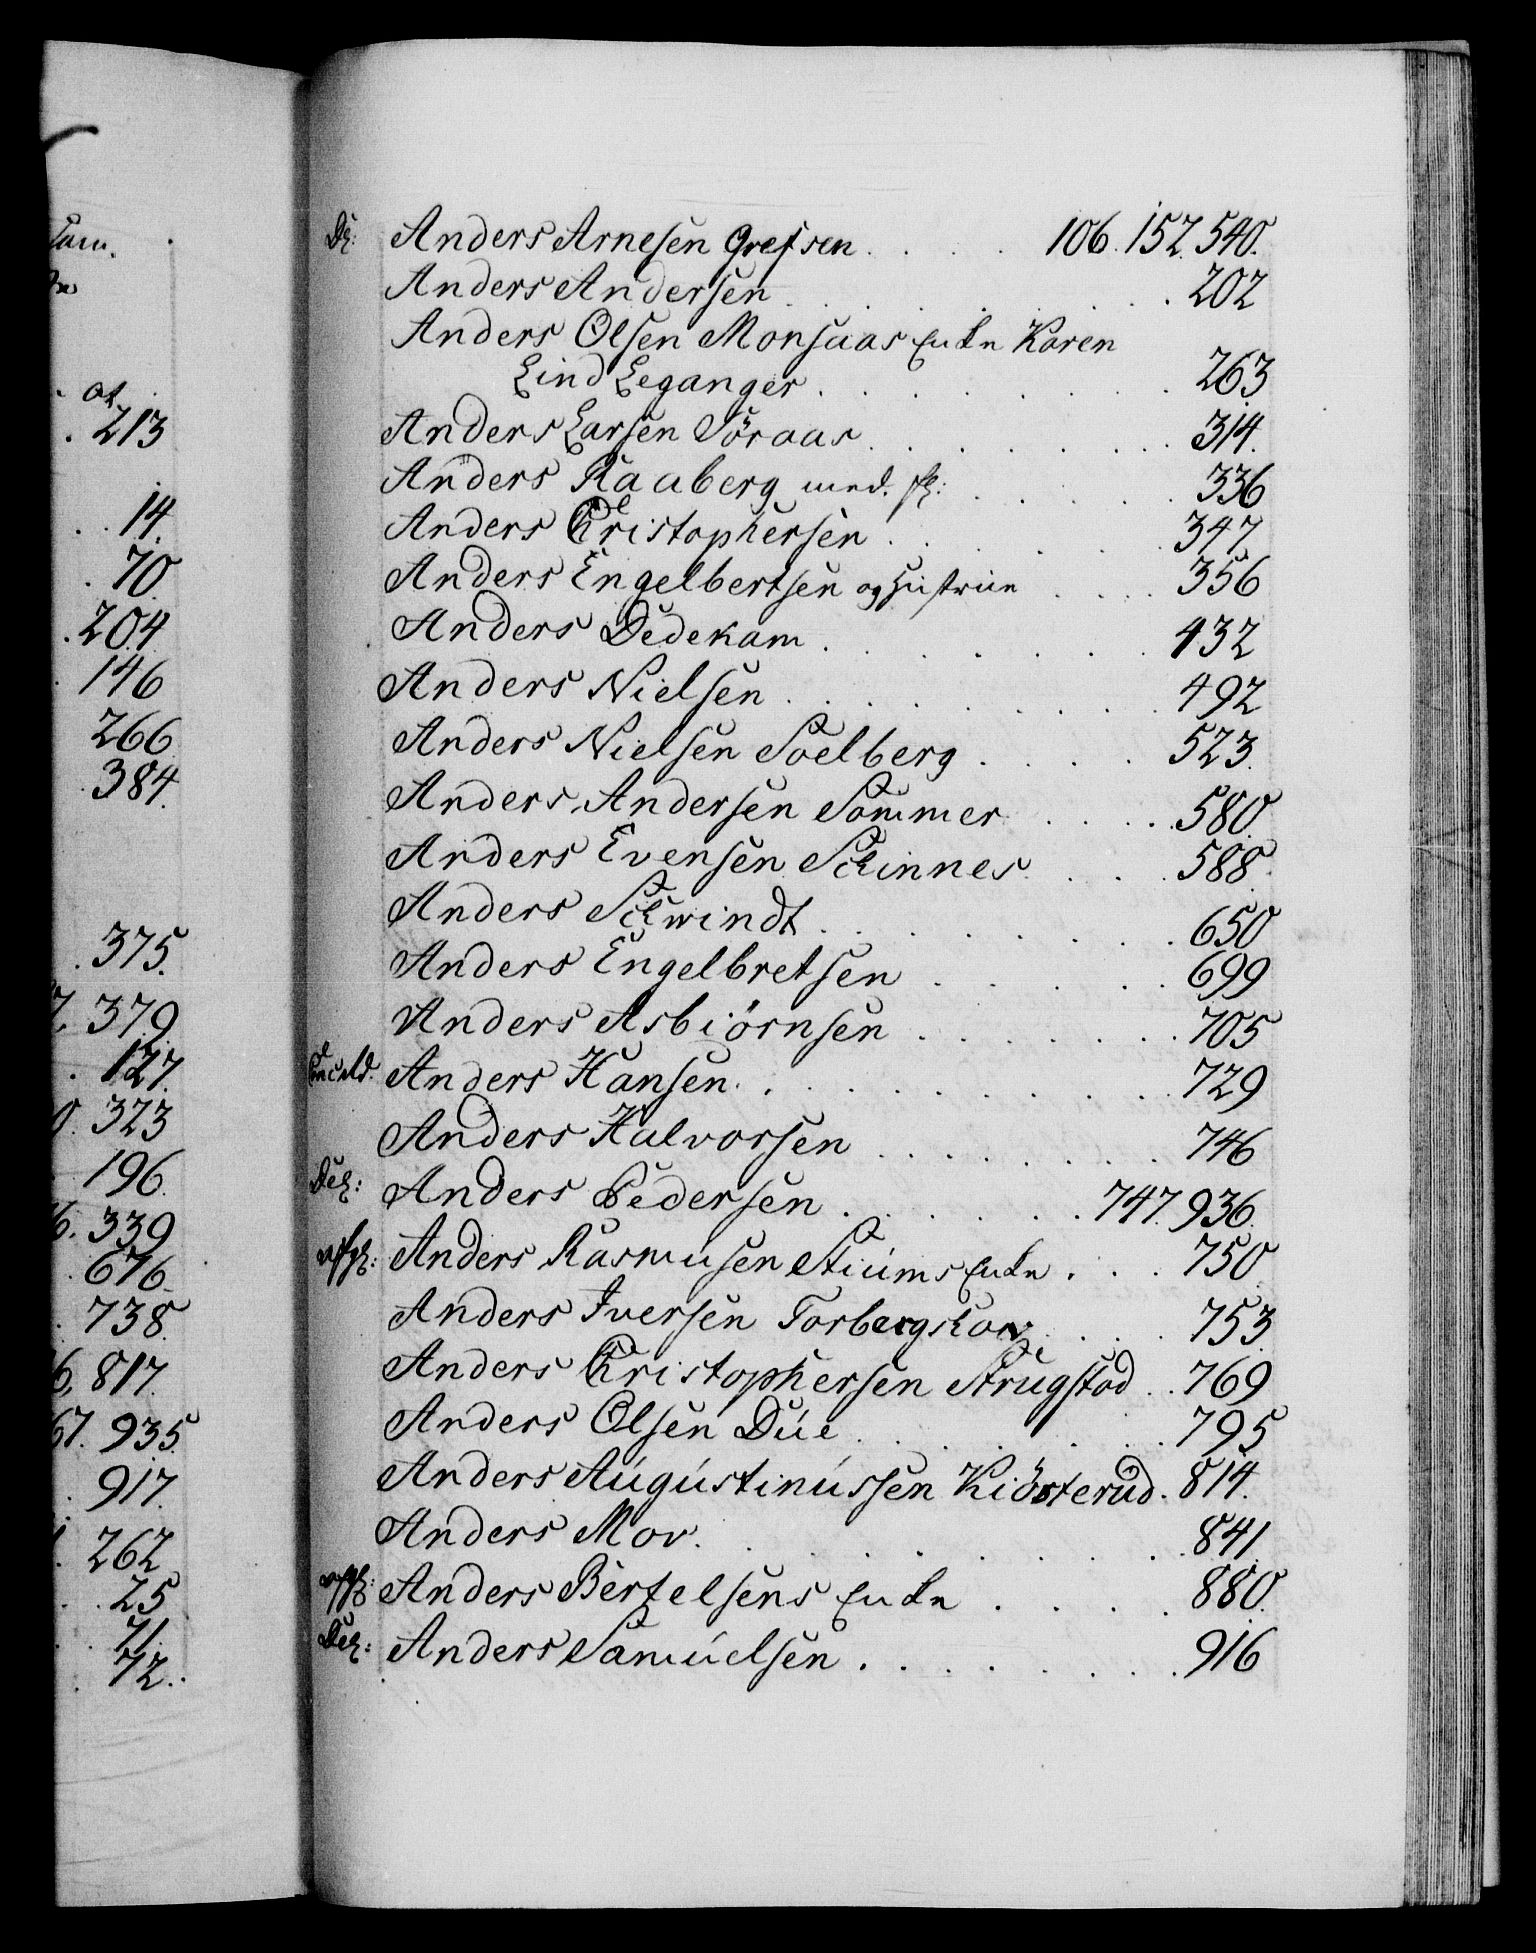 at
213
14.
70.
204.
146
266
384.
375.
379.
127.
323
196.
339
676.
738.
817.
935.
917.
262
25
71.
72.
Anders Arnesen Grefsen . . . . 106. 152. 540.
Anders Andersen . . . . . . . 202
Anders Olsen Monsaas Enke Karen
Lind Leganger . . . . . . . 263
Anders Larsen Söraas . . . . . . 314.
Anders Raaberg med. fl: . . . . . 336
Anders Christophersen . . . . . 347
Anders Engelbertsen og Hustrue . . . . 356
Anders Dedekam . . . . . . 432
Anders Nielsen . . . . . . . 492
Anders Nielsen Soelberg . . . . 523.
Anders Andersen Sommer . . . . 580.
Anders Evensen Schinnes . . . . 588.
Anders Schwindt . . . . . . . 650
Anders Engelbretsen . . . . . 699
Anders Asbiörnsen . . . . . . 705
Anders Hansen . . . . . . . . 729
Anders Halvorsen . . . . . . 746
Deh: Anders Pedersen . . . . . 747. 936.
Anders Rasmusen Stiums Enke . . . 750
Anders Iversen Torbergskov . . . 753.
Anders Christophersen Strugstad . . 769
Anders Olsen Due . . . . . . 795
Anders Augustinussen Kiösterud . 814.
Anders Mov. . . . . . . . . 841.
Anders Bertelsens Enke . . . . 880.
Deh: Anders Samuelsen . . . . . . 916